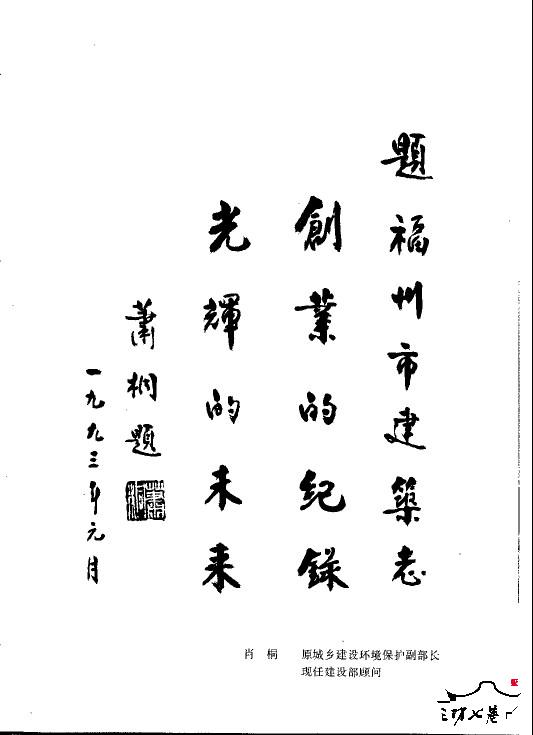 題福州市建築志
創業的纪錄
光輝的未来
蕭桐題
一九九三年元月
肖桐 原城乡建设环境保护副部长
现任建设部顾问